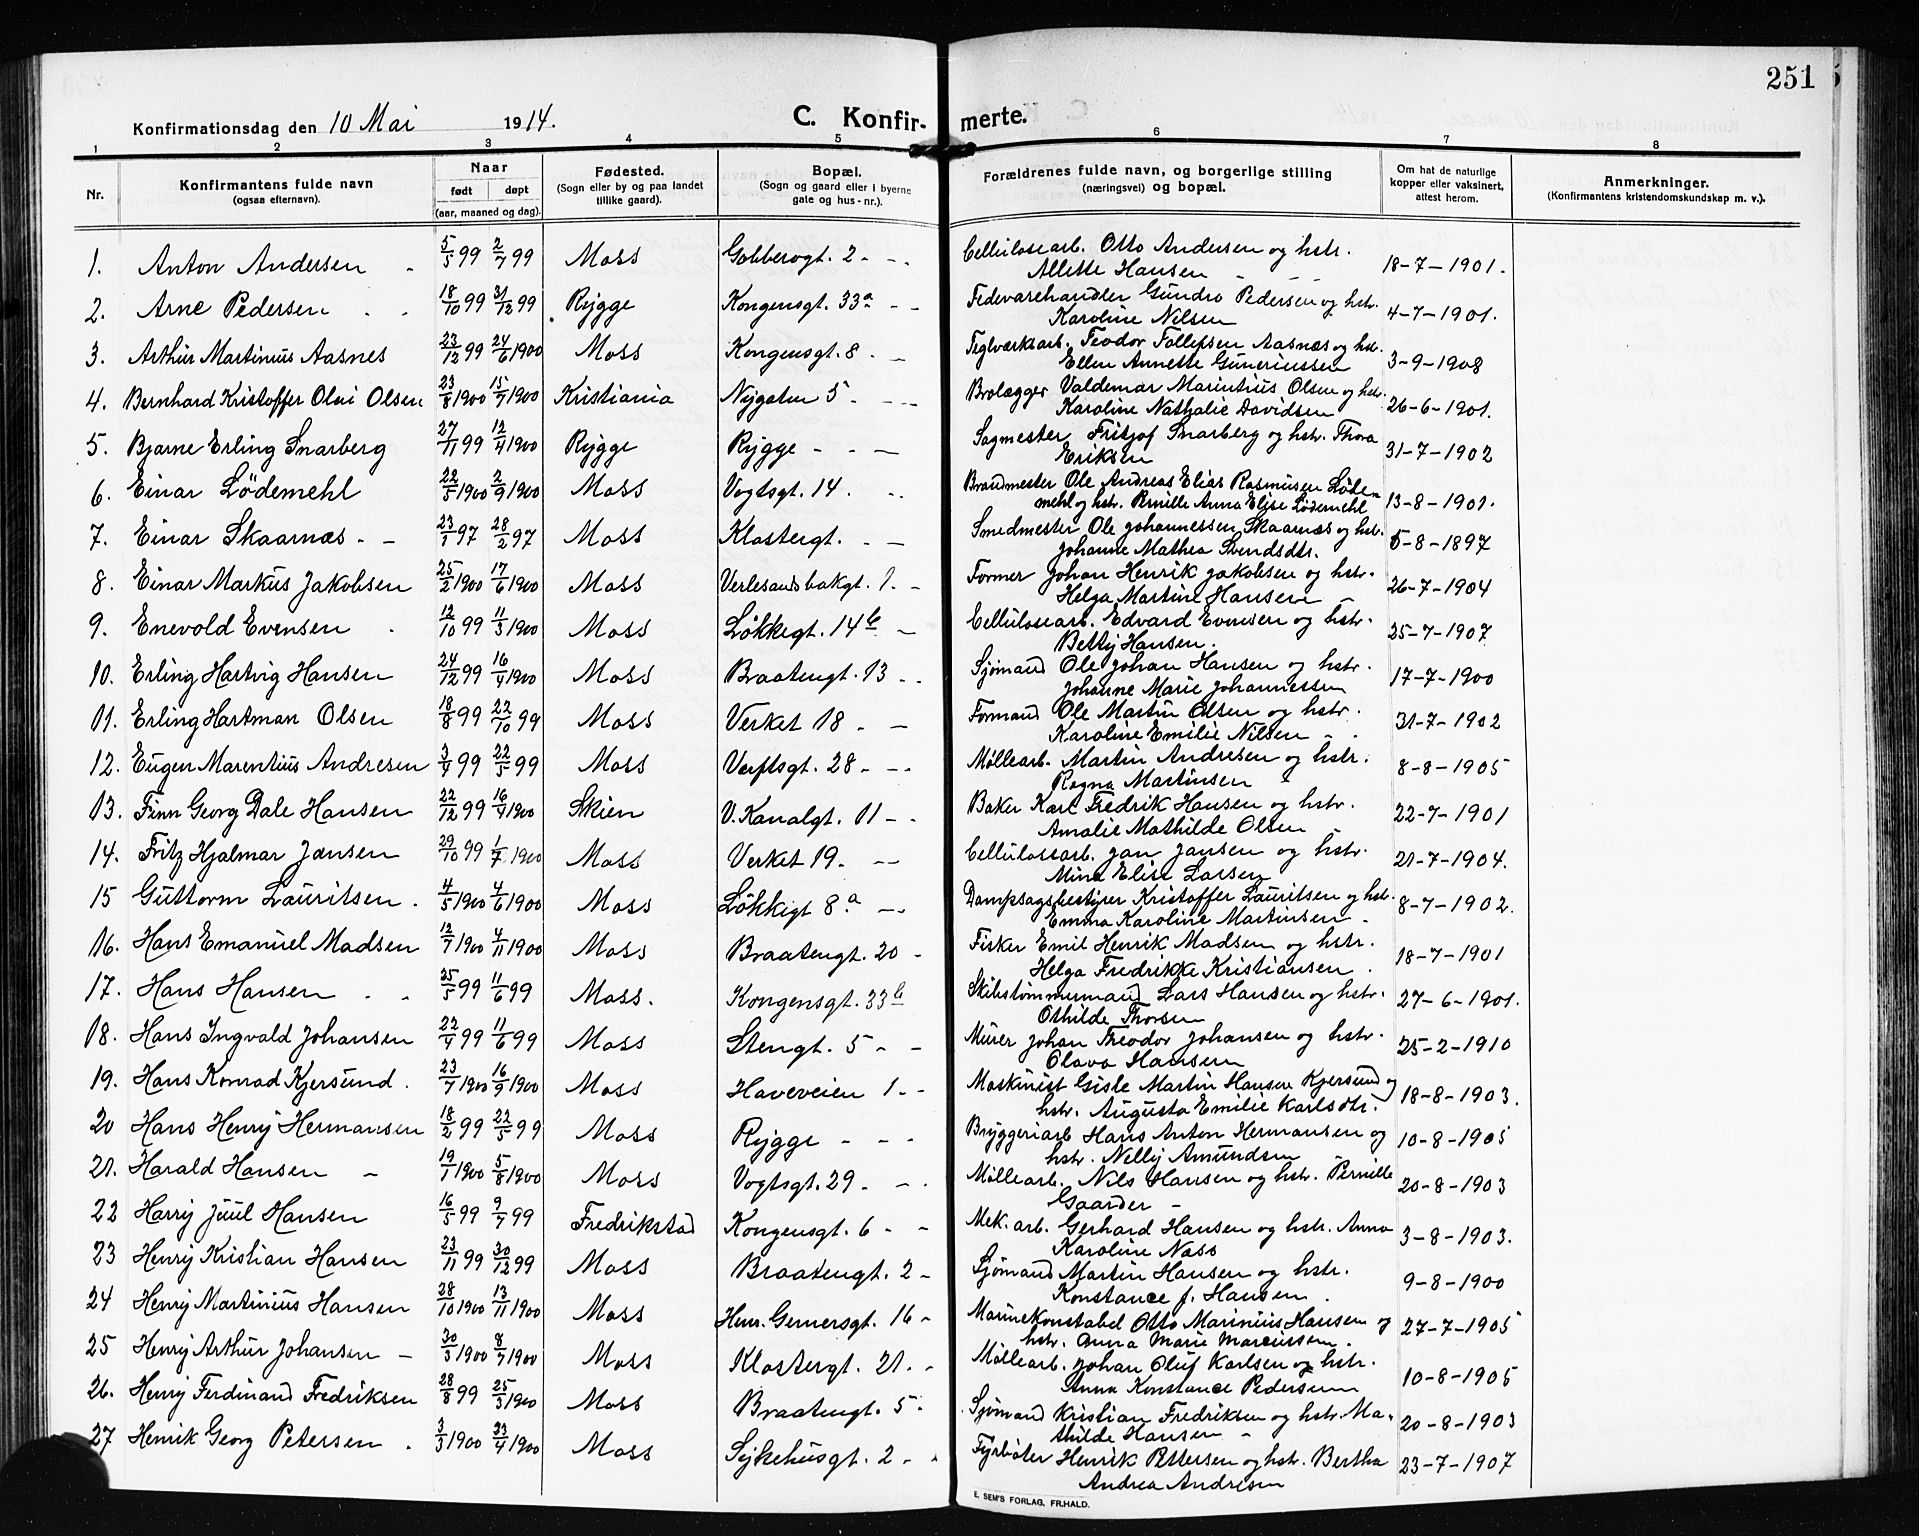 251
Konfirmationsdag den 10 Mai 1914.
C. Konfirmerte.
1 2 3 4 5 6 7 8
Nr. Konfirmantens fulde navn (ogsaa efternavn). Naar født døpt (aar, maaned og dag). Fødested. (Sogn eller by og paa landet tillike gaard). Bopæl. (Sogn og gaard eller i byerne gate og hus-nr.). Forældrenes fulde navn, og borgerlige stilling (næringsvei) og bopæl. Om hat de naturlige kopper eller vaksinert, attest herom. Anmerkninger. (Konfirmantens kristendomskundskap m. v.).
1. Anton Andersen 5/5 99 2/7 99 Moss Gobberogt. 2 Cellulosearb. Otto Andersen og hstr. Allette Hansen 18-7-1901.
2. Arne Pedersen 18/10 99 31/12 99 Rygge Kongensgt. 33a Fedevarehandler Gundro Pedersen og hstr. Karoline Nilsen 4-7-1901.
3. Arthur Martinius Aasnes 23/12 99 24/6 1900 Moss Kongensgt. 8 Teglverksarb. Teodor Tollefsen Aasnæs og hstr. Ellen Annette Guneriussen 3-9-1908
4. Bernhard Kristoffer Olai Olsen 23/8 1900 15/7 1900 Kristiania Nygaten 5 Brolægger Valdemar Marintius Olsen og hstr. Karoline Nathalie Davidsen 26-6-1901.
5. Bjarne Erling Snarberg 27/11 99 12/4 1900 Rygge Rygge Sagmester Fritjof Snarberg og hstr. Thora Eriksen 31-7-1902
6. Einar Lödemehl 22/5 1900 2/9 1900 Moss Vogtsgt. 14. Brandmester Ole Andreas Elias Rasmusen Lödemehl og hstr. Pernille Anna Elise Lödemehl 13-8-1901.
7. Einar Skaarnæs 23/1 97 28/2 97 Moss Klostergt. Smedmester Ole Johannessen Skaarnæs og hstr. Johanne Mathea Svendsdtr. 5-8-1897
8. Einar Markus Jakobsen 25/2 1900 17/6 1900 Moss Verlesandsbakgt. 1. Former Johan Henrik Jakobsen og hstr. Helga Martine Hansen 26-7-1904
9. Enevold Evensen 12/10 99 11/3 1900 Moss Løkkegt. 14b Cellulosearb. Edvard Evensen og hstr. Betty Hansen. 25-7-1907
10. Erling Hartvig Hansen 24/12 99 16/4 1900 Moss Braatengt. 13 Sjømand Ole Johan Hansen og hstr. Johanne Marie Johannessen 17-7-1900
11. Erling Hartman Olsen 18/8 99 22/10 99 Moss Verket 18 Formand Ole Martin Olsen og hstr. Karoline Emilie Nilsen 31-7-1902
12. Eugen Marentius Andresen 3/4 99 22/5 99 Moss Verftsgt. 28 Møllearb. Martin Andresen og hstr. Ragna Martinsen 8-8-1905
13. Finn Georg Dale Hansen 22/12 99 16/4 1900 Skien V. Kanalgt. 11 Baker Karl Fredrik Hansen og hstr. Amalie Mathilde Olsen 22-7-1901
14. Fritz Hjalmar Jansen 29/10 99 1/7 1900 Moss Verket 19. Cellulosearb. Jan Jansen og hstr. Mina Elise Larsen 21-7-1904.
15 Guttorm Lauritsen. 4/5 1900 4/6 1900 Moss Løkkegt 8a Dampsagsbestyrer Kristoffer Lauritsen og hstr. Emma Karoline Martinsen 8-7-1902.
16. Hans Emanuel Madsen 12/7 1900 4/11 1900 Moss Braatengt. 20 Fisker Emil Henrik Madsen og hstr. Helga Fredrikke Kristiansen. 18-7-1901
17. Hans Hansen 25/5 99 11/6 99 Moss. Kongensgt. 33b Skibstømmermand Lars Hansen og hstr. Othilde Thorsen 27-6-1901.
18. Hans Ingvald Johansen 22/4 99 11/6 99 Moss Stengt. 5 Murer Johan Teodor Johansen og hstr. Olava Hansen 25-2-1910
19. Hans Konrad Kjersund. 23/7 1900 16/9 1900 Moss Haveveien 1 Maskinist Gisle Martin Hansen Kjersund og hstr. Augusta Emilie Karlsdtr. 18-8-1903.
20 Hans Henry Hermansen 18/2 99 22/5 99 Moss Rygge Bryggeriarb Hans Anton Hermansen og hstr. Nelly Amundsen 10-8-1905
21. Harald Hansen 19/1 1900 5/8 1900 Moss Vogtsgt. 29 Møllearb. Nils Hansen og hstr. Pernille Gaarder 20-8-1903
22 Harry Juul Hansen 16/5 99 9/7 99 Fredrikstad Kongensgt. 6 Mek. arb. Gerhard Hansen og hstr. Anna Karoline Næss 3-8-1903.
23 Henry Kristian Hansen 23/11 99 30/12 99 Moss Braatengt. 2 Sjømand Martin Hansen og hstr. Konstance J. Hansen. 9-8-1900
24 Henry Martinius Hansen 28/10 1900 13/11 1900 Moss Henr. Gernersgt. 16 Marinekonstabel Otto Marinius Hansen og hstr. Anna Marie Marcussen. 27-7-1905
25 Henry Arthur Johansen 30/3 1900 8/7 1900 Moss Klostergt. 21. Møllearb. Johan Oluf Karlsen og hstr. Anna Konstance Pedersen 10-8-1905
26. Henry Ferdinand Fredriksen 28/8 99 25/3 1900 Moss Braatengt. 5 Sjømand Kristian Fredriksen og hstr. Mathilde Hansen 20-8-1903
27 Henrik Georg Petersen. 3/3 1900 23/4 1900 Moss Sykehusgt. 2 Fyrbøter Henrik Pettersen og hstr. Bertha Andrea Andresen 23-7-1907
E. SEM'S FORLAG, FR.HALD.